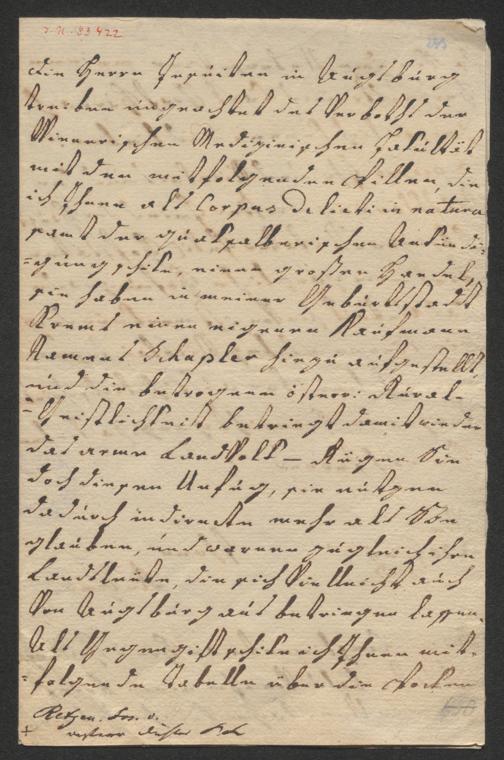 I. N. 33422
235
Die Herrn Jesuiten in Augsburg
treiben ungeachtet des Verboths der
Wienerischen Medizinischen Fakultät
mit den mitfolgenden Pillen, die
ich Ihnen als Corpus Delicti in natura
samt der quaksalberischen Ankündi-
=gung schike, einen großen Handel,
sie haben in meiner Geburtsstadt
Krems einen eigenen Kaufmann
Namens Schapler hiezu aufgestellt,
und die betrogene österr: Rural-
=Geistlichkeit betriegt damit wieder
das arme Landvolk — Rügen Sie
doch diesen Unfug, sie nützen
dadurch indirecte mehr als Sie
glauben, und warnen zugleich ihre
Landsleute, die sich vielleicht auch
von Augsburg aus betriegen lassen.
Als Gegengift schike ich Ihnen mit-
=folgende Tabelle über die Pocken
Retzer, Jos. v.